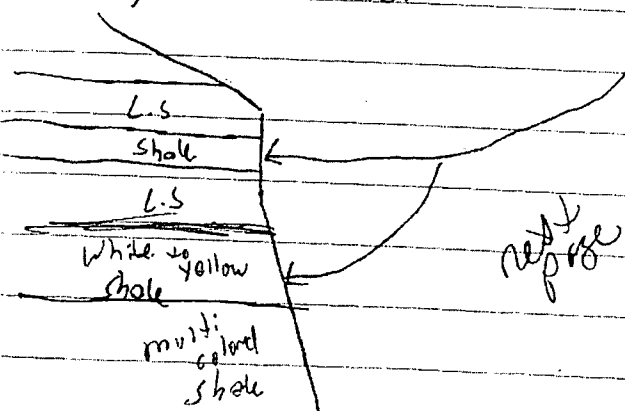 L.S
Shale
L.S
White to yellow
shale
multi
colored
shale
next
page